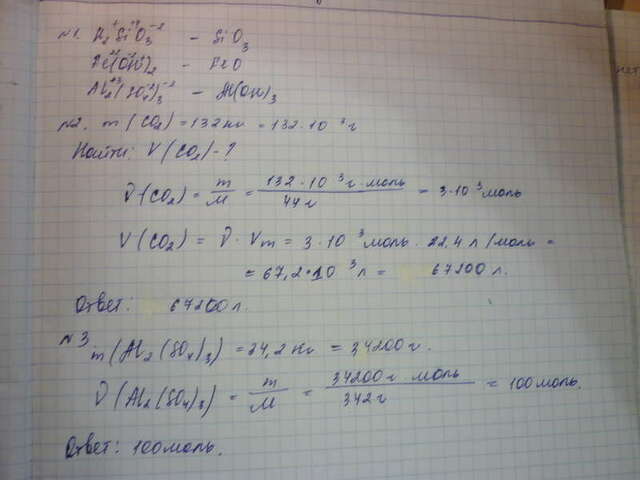 №1. H₂⁺Si⁺⁴O₃⁻² – SiO₃
Fe⁺²(OH⁻)₂ – FeO
Al₂⁺³(SO₄)₃⁻² – Al(OH)₃
№2. m(CO₂) = 132 кг = 132·10³ г
Найти: V(CO₂) – ?
ν(CO₂) = m/M = 132·10³ г·моль/44 г = 3·10³ моль
V(CO₂) = ν · Vm = 3·10³ моль · 22,4 л/моль =
= 67,2·10³ л = 67200 л.
Ответ: 67200 л.
№3 m(Al₂(SO₄)₃) = 34,2 кг = 34200 г.
ν(Al₂(SO₄)₃) = m/M = 34200 г моль/342 г = 100 моль.
Ответ: 100 моль.